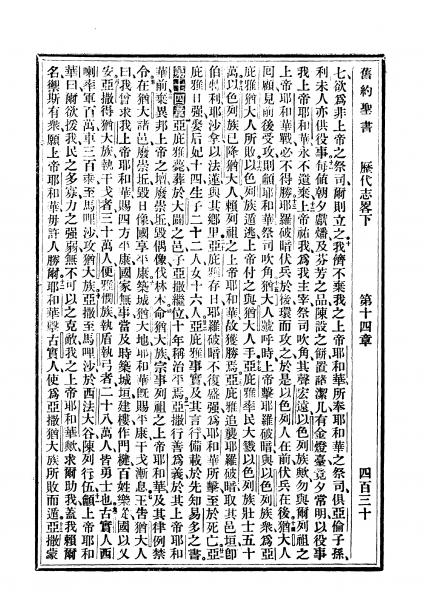 舊約聖書 歷代志畧下 第十四章 四百三十
七欲爲非上帝之祭司爾則立之我儕不棄我之上帝耶和華所奉耶和華之祭司俱亞倫子孫
利未人亦供役事每値朝夕獻燔及芬芳之品陳設之餅置諸潔几有金燈臺竟夕常明以役事
我上帝耶和華永不遺棄上帝祐我爲我主宰祭司吹角其聲宏遠以色列族歟勿與爾列祖之
上帝耶和華戰必不得勝耶羅破暗伏兵於後環而攻之於是以色列人在前伏兵在後猶大人
回顧見前後受攻則籲耶和華祭司吹角猶大人號呼時上帝擊耶羅破暗與以色列族衆爲亞
庇雅猶大人所敗以色列族遁逃上帝付之與猶大人手亞庇雅率民大戮以色列族壯士五十
萬以色列族已降猶大人賴列祖之上帝耶和華故獲勝焉亞庇雅追襲耶羅破暗取其邑垣卽
伯特利耶沙拿以法蓮與其鄉里亞庇雅存日耶羅破暗不復盛强爲耶和華所擊至於死亡亞
庇雅日强娶后妃十四生子二十二人女十六人亞庇雅事實及其言行備載於先知易多之書
第十四章亞庇雅薨葬於大闢之邑子亞撒繼位十年稱治平焉亞撒行善爲義於其上帝耶和
華前棄異邦上帝之壇毀崇坵毀偶像伐林木命猶大族宗事列祖之上帝耶和華及其律例禁
令在猶大諸邑廢崇坵毀日像國享平康築城猶大地耶和華旣賜平康干戈漸息王告猶大人
曰我曾求我上帝耶和華賜四方平康國家無事當及時築城垣建樓作門楗百姓樂從國以乂
安亞撒得猶大族執干戈者三十萬人便雅憫族執盾執弓者二十八萬人皆勇士也古實人西
喇率軍百萬車三百乘至馬哩沙攻猶大族亞撒至馬哩沙於西法大谷陳列行伍籲上帝耶和
華曰爾欲援我民之多寡力之强弱無不可以之克敵我之上帝耶和華歟求爾助我蓋我賴爾
名禦斯有衆願上帝耶和華毋許人勝爾耶和華擊古實人使爲亞撒猶大族所敗而遁亞撒蒙